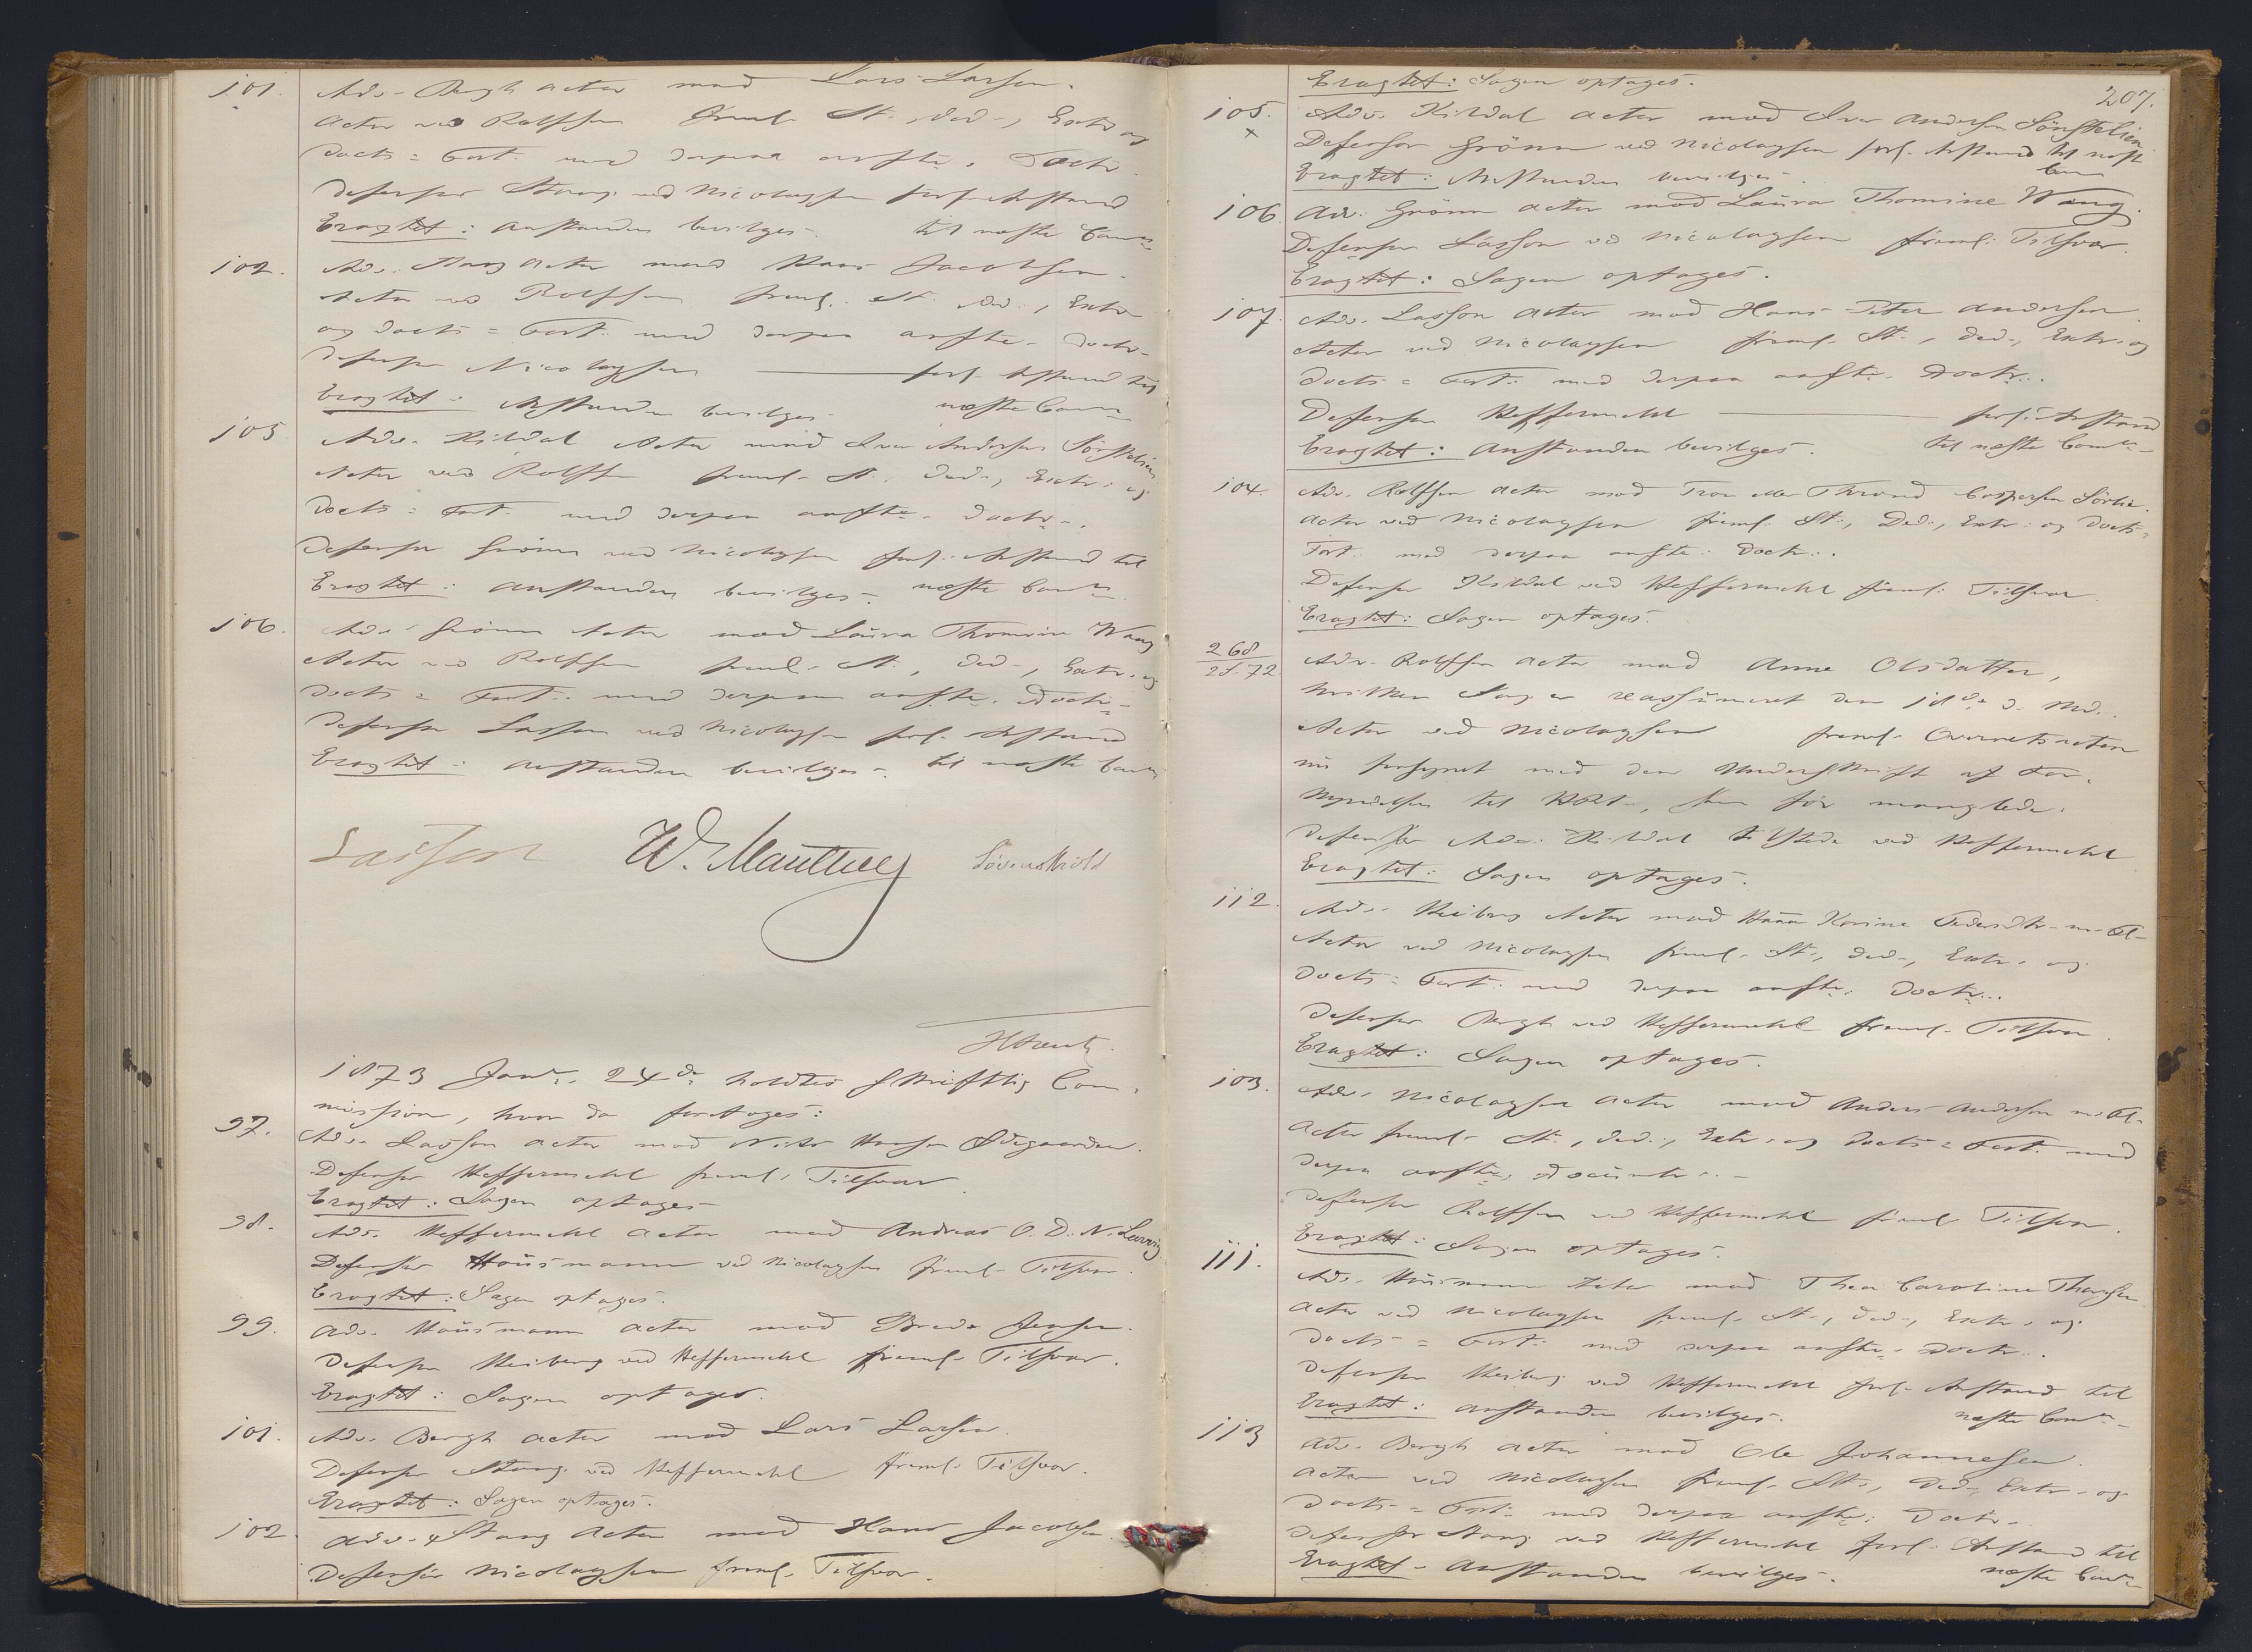 101. Adv. Bergh Actor mod Lars Larsen.
Actor ved Rolfsen freml. St., Ded., Extr. og
Doct.= Fort. med derpaa anfte. Doctr.
Defensor Stang ved Nicolaysen forl. Anstand
Eragtet: Anstanden bevilges. til næste Comn.
102. Adv. Stang Actor mod Hans Jacobsen.
Actor ved Rolfsen freml. St., Ded., Extr.
og Doct.= Fort. med derpaa anfte. Doctr.
Defensor Nicolaysen forl. Anstand til
Eragtet: Anstanden bevilges. næste Comn.
105 Adv. Kildal Actor mod Iver Andersen Sönstelien
Actor ved Rolfsen freml. St., Ded., Extr. og
Doct.= Fort. med derpaa anfte. Doctr.
Defensor Grönn ved Nicolaysen forl. Anstand til
Eragtet: Anstanden bevilges. næste Comn.
106. Adv. Grönn Actor mod Laura Thomine Wang
Actor ved Rolfsen freml. St., Ded., Extr. og
Doct.= Fort. med derpaa anfte. Doctr.
Defensor Lasson ved Nicolaysen forl. Anstand
Eragtet: Anstanden bevilges. til næste Comn.
Lasson W. Manthey Løvenskiold
1873 Janr. 24de holdtes skriftlig Com-
mission, hvor da foretages:
97. Adv. Lasson Actor mod Nils Hansen Ødegaarden.
Defensor Heffermehl freml. Tilsvar.
Eragtet: Sagen optages.
98. Adv. Heffermehl Actor mod Andreas O. D. N. Lervig.
Defensor Housmann ved Nicolaysen freml. Tilsvar.
Eragtet: Sagen optages.
99. Adv. Housmann Actor mod Brede Jensen.
Defensor Heiberg ved Heffermehl freml. Tilsvar.
Eragtet: Sagen optages.
101. Adv. Bergh Actor mod Lars Larsen.
Defensor Stang ved Heffermehl freml. Tilsvar.
Eragtet: Sagen optages.
102. Adv. Stang Actor mod Hans Jacobsen
Defensor Nicolaysen freml. Tilsvar.
207.
Eragtet: Sagen optages.
105. Adv. Kildal Actor mod Iver Andersen Sönstelien
x Defensor Grönn ved Nicolaysen forl. Anstand til næste
Eragtet: Anstanden bevilges. Comn
106. Adv. Grönn Actor mod Laura Thomine Wang.
Defensor Lasson ved Nicolaysen freml. Tilsvar.
Eragtet: Sagen optages.
107. Adv. Lasson Actor mod Hans Peter Andersen.
Actor ved Nicolaysen freml. St., Ded., Extr. og
Doct.= Fort. med derpaa anfte. Doctr.
Defensor Heffermehl forl. Anstand
Eragtet: Anstanden bevilges. til næste Comn.
104. Adv. Rolfsen Actor mod Tron eller Thrond Caspersen Sörlie.
Actor ved Nicolaysen freml. St., Ded., Extr. og Doct.=
Fort. med derpaa anfte. Doctr.
Defensor Kildal ved Heffermehl freml. Tilsvar.
Eragtet: Sagen optages.
268/28.72. Adv. Rolfsen Actor mod Anne Olsdatter,
hvilken Sag er reassumeret den 18de d. Md.
Actor ved Nicolaysen freml. Overretsacten
nu forsynet med den Underskrift af
til som før manglede.
Defensor Adv. Kildal tilstede ved Heffermehl
Eragtet: Sagen optages.
112. Adv. Heiberg Actor mod Karine Pedersdtr. m. Fl.
Actor ved Nicolaysen freml. St., Ded., Extr. og
Doct.= Fort. med derpaa anfte. Doctr.
Defensor Bergh ved Heffermehl freml. Tilsvar.
Eragtet: Sagen optages.
103. Adv. Nicolaysen Actor mod Anders Andersen m. Fl.
Actor freml. St., Ded., Extr. og Doct.= Fort. med
derpaa anfte. Documtr.
Defensor Rolfsen ved Heffermehl freml. Tilsvar.
Eragtet: Sagen optages.
111. Adv. Housmann Actor mod Thea Caroline Thorsen
Actor ved Nicolaysen freml. St., Ded., Extr. og
Doct.= Fort. med derpaa anfte. Doctr.
Defensor Heiberg ved Heffermehl forl. Anstand til
Eragtet: Anstanden bevilges. næste Comn.
113 Adv. Bergh Actor mod Ole Johannesen.
Actor ved Nicolaysen freml. St., Ded., Extr. og
Doct.= Fort. med derpaa anfte. Doctr.
Defensor Stang ved Heffermehl forl. Anstand til
Eragtet. Anstanden bevilges. næste Comn.